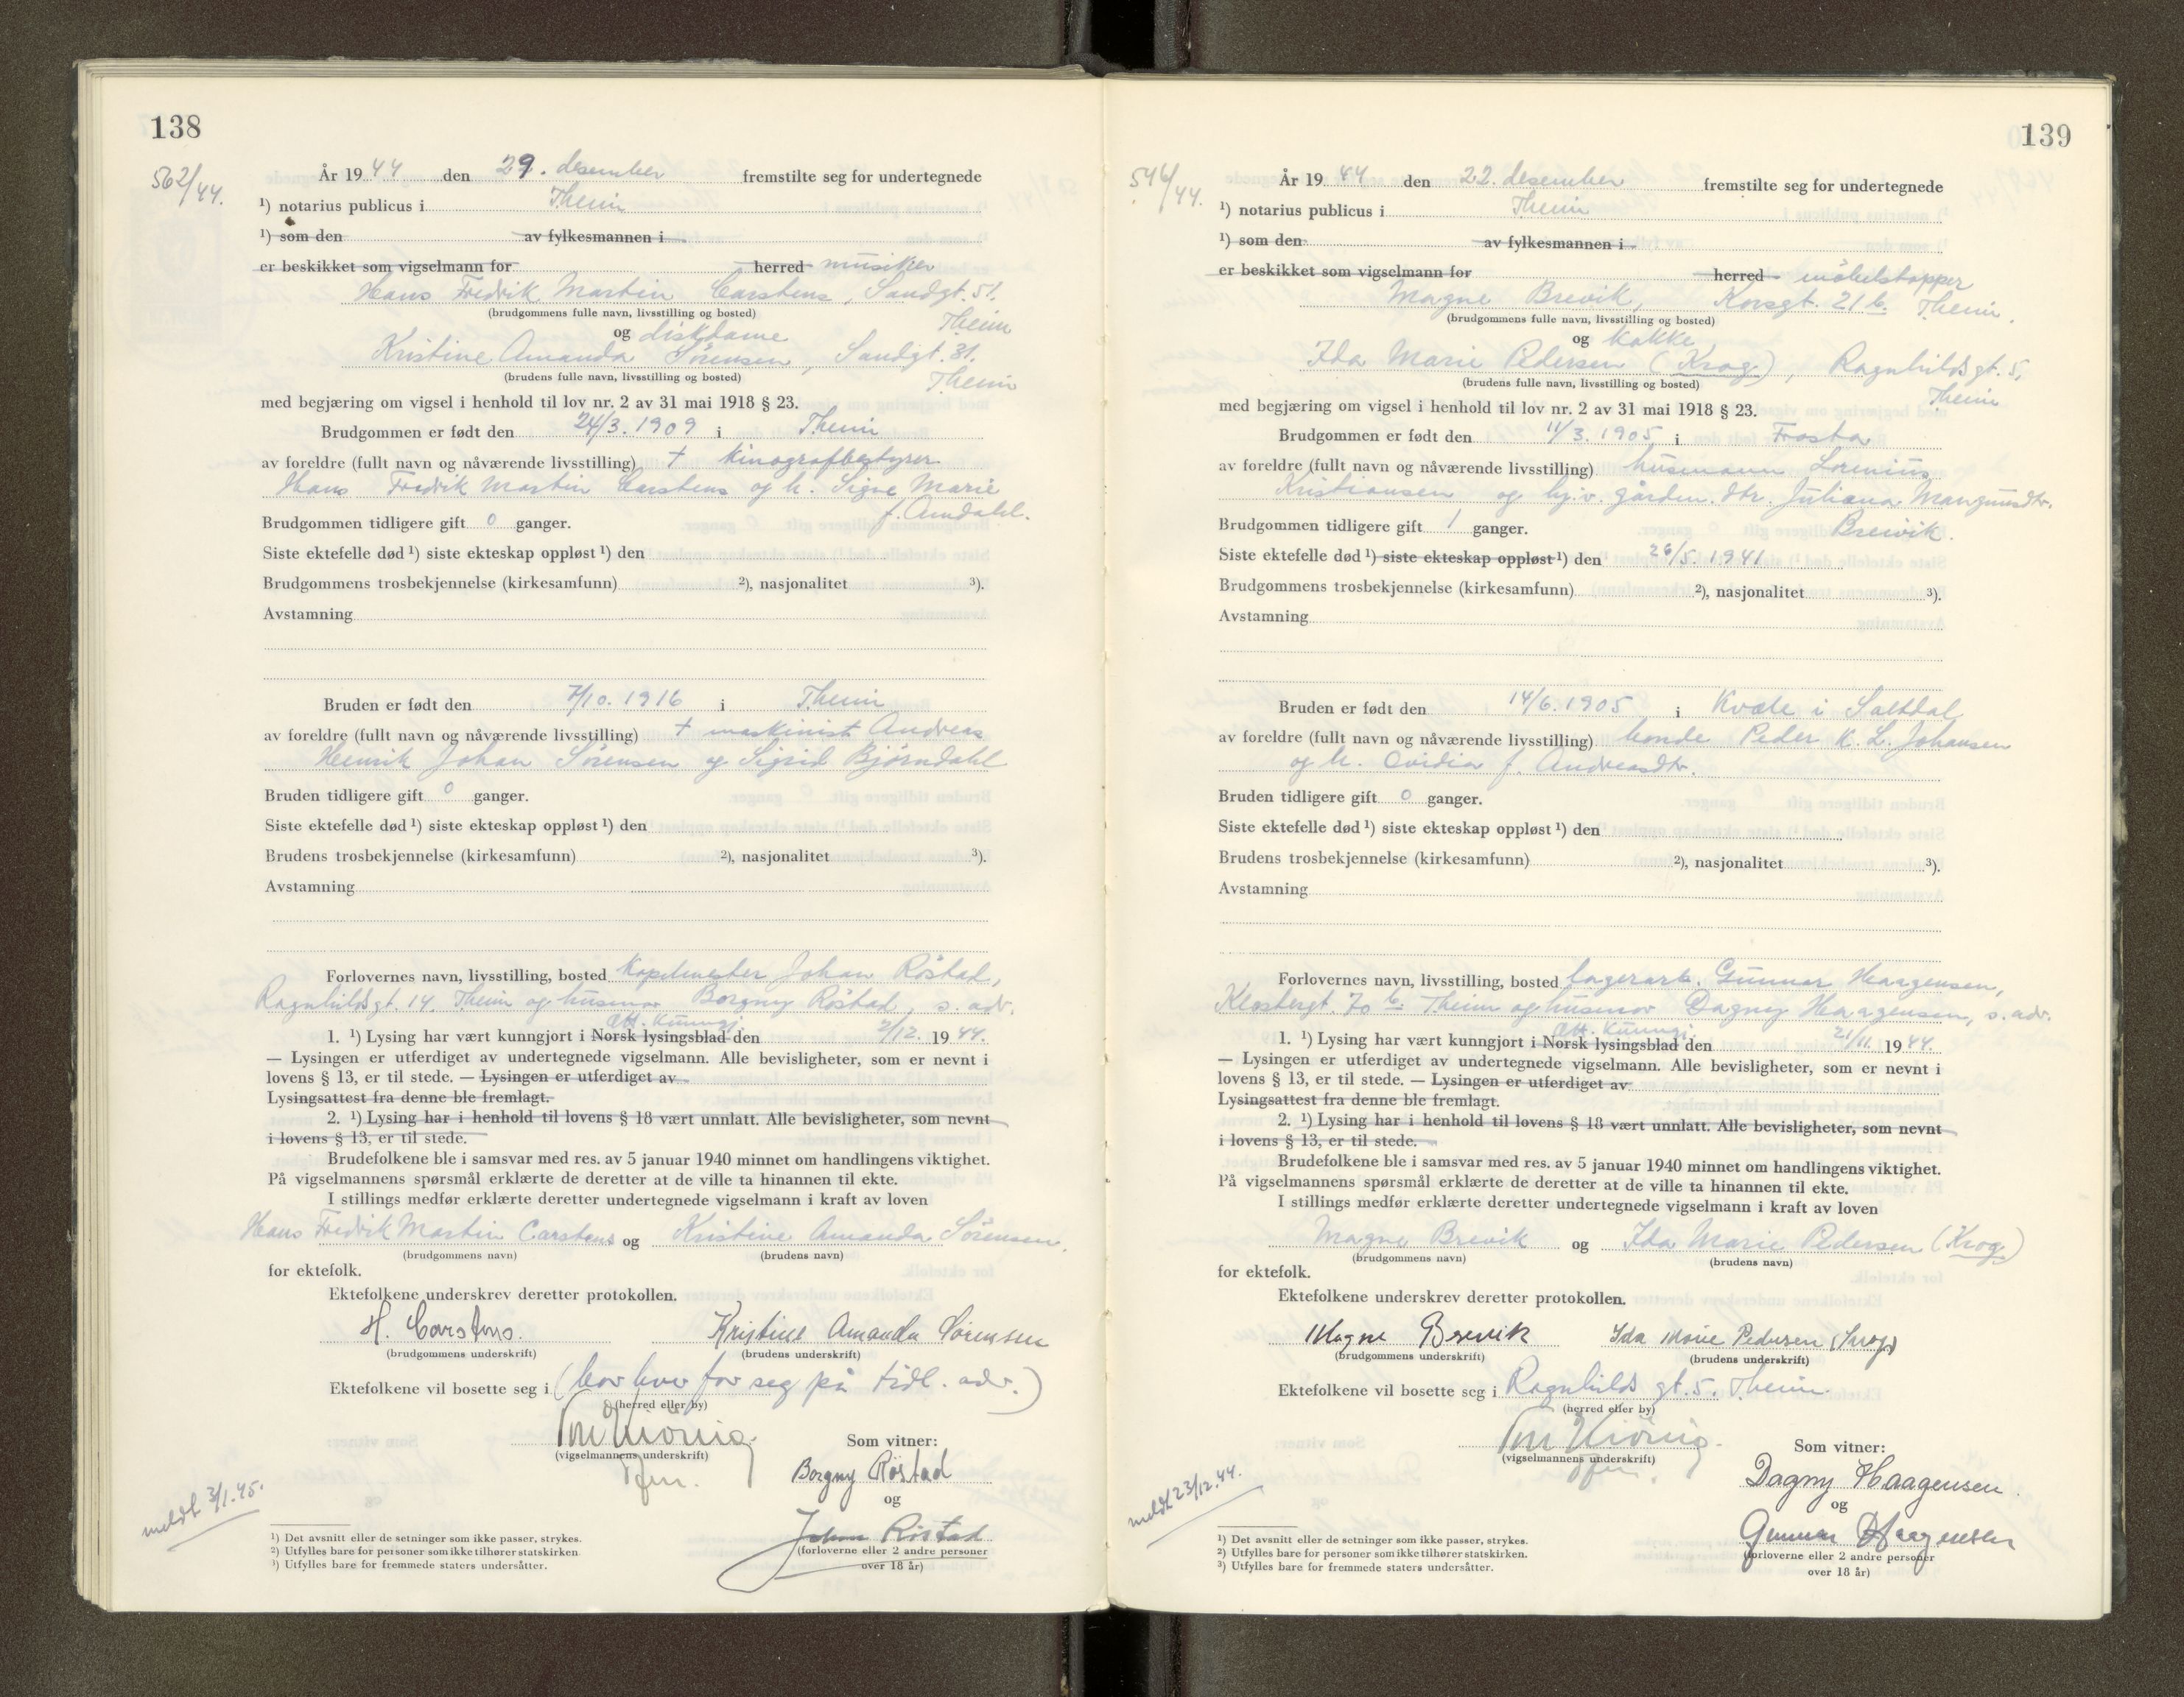 138
562/44.
År 1944 den 29. desember fremstilte seg for undertegnede
¹) notarius publicus i Theim
¹) som den av fylkesmannen i
er beskikket som vigselmann for herred musiker
Hans Fredrik Martin Carstens, Sandgt. 51.
(brudgommens fulle navn, livsstilling og bosted) Theim
og diskdame
Kristine Amanda Sörensen, Sandgt. 31.
(brudens fulle navn, livsstilling og bosted) Theim
med begjæring om vigsel i henhold til lov nr. 2 av 31 mai 1918 § 23.
Brudgommen er født den 24/3. 1909 i Theim
av foreldre (fullt navn og nåværende livsstilling) † kinografbestyrer
Hans Fredrik Martin Carstens og h. Signe Marie
f. Amdahl.
Brudgommen tidligere gift 0 ganger.
Siste ektefelle død ¹) siste ekteskap oppløst ¹) den
Brudgommens trosbekjennelse (kirkesamfunn) ²), nasjonalitet ³).
Avstamning
Bruden er født den 7/10. 1916 i Theim
av foreldre (fullt navn og nåværende livsstilling) † maskinist Andreas
Henrik Johan Sörensen og Sigrid Bjørndahl
Bruden tidligere gift 0 ganger.
Siste ektefelle død ¹) siste ekteskap oppløst ¹) den
Brudens trosbekjennelse (kirkesamfunn) ²), nasjonalitet ³).
Avstamning
Forlovernes navn, livsstilling, bosted Kapelmester Johan Röstad,
Ragnhildsgt. 14. Theim og husmor Borgny Röstad, s. adr.
off. kunngj.
1. ¹) Lysing har vært kunngjort i Norsk lysingsblad den 2/12. 1944.
— Lysingen er utferdiget av undertegnede vigselmann. Alle bevisligheter, som er nevnt i
lovens § 13, er til stede. — Lysingen er utferdiget av
Lysingsattest fra denne ble fremlagt.
2. ¹) Lysing har i henhold til lovens § 18 vært unnlatt. Alle bevisligheter, som nevnt
i lovens § 13, er til stede.
Brudefolkene ble i samsvar med res. av 5 januar 1940 minnet om handlingens viktighet.
På vigselmannens spørsmål erklærte de deretter at de ville ta hinannen til ekte.
I stillings medfør erklærte deretter undertegnede vigselmann i kraft av loven
Hans Fredrik Martin Carstens og Kristine Amanda Sörensen.
(brudgommens navn) (brudens navn)
for ektefolk.
Ektefolkene underskrev deretter protokollen.
H. Carstens. Kristine Amanda Sörensen
(brudgommens underskrift) (brudens underskrift)
Ektefolkene vil bosette seg i (bor hver for seg på tidl. adr.)
(herred eller by)
Som vitner:
(vigselmannens underskrift)
Borgny Röstad
og
meldt 3/1.45.
Johan Röstad
(forloverne eller 2 andre personer
over 18 år)
¹) Det avsnitt eller de setninger som ikke passer, strykes.
²) Utfylles bare for personer som ikke tilhører statskirken.
³) Utfylles bare for fremmede staters undersåtter.
139
546/44.
År 1944 den 22. desember fremstilte seg for undertegnede
¹) notarius publicus i Theim
¹) som den av fylkesmannen i
er beskikket som vigselmann for herred möbelstopper
Magne Brevik, Korsgt. 21 b. Theim.
(brudgommens fulle navn, livsstilling og bosted)
og kokke
Ida Marie Pedersen (Krog), Ragnhildsgt. 5,
(brudens fulle navn, livsstilling og bosted) Theim
med begjæring om vigsel i henhold til lov nr. 2 av 31 mai 1918 § 23.
Brudgommen er født den 11/3. 1905 i Frosta
av foreldre (fullt navn og nåværende livsstilling) husmann Lorenius
Kristiansen og hj.v. gården. dtr. Juliana Mangnusdtr.
Breivik.
Brudgommen tidligere gift 1 ganger.
Siste ektefelle død ¹) siste ekteskap oppløst ¹) den 26/5. 1941
Brudgommens trosbekjennelse (kirkesamfunn) ²), nasjonalitet ³).
Avstamning
Bruden er født den 14/6. 1905 i Kvæle i Saltdal
av foreldre (fullt navn og nåværende livsstilling) bonde Peder K. L. Johansen
og h. Ovidia f. Andreasdtr.
Bruden tidligere gift 0 ganger.
Siste ektefelle død ¹) siste ekteskap oppløst ¹) den
Brudens trosbekjennelse (kirkesamfunn) ²), nasjonalitet ³).
Avstamning
Forlovernes navn, livsstilling, bosted lagerarb. Gunnar Haagensen,
Klostergt. 70 b. Theim og husmor Dagny Haagensen, s. adr.
off. kunngj.
1. ¹) Lysing har vært kunngjort i Norsk lysingsblad den 21/11. 1944.
— Lysingen er utferdiget av undertegnede vigselmann. Alle bevisligheter, som er nevnt i
lovens § 13, er til stede. — Lysingen er utferdiget av
Lysingsattest fra denne ble fremlagt.
2. ¹) Lysing har i henhold til lovens § 18 vært unnlatt. Alle bevisligheter, som nevnt
i lovens § 13, er til stede.
Brudefolkene ble i samsvar med res. av 5 januar 1940 minnet om handlingens viktighet.
På vigselmannens spørsmål erklærte de deretter at de ville ta hinannen til ekte.
I stillings medfør erklærte deretter undertegnede vigselmann i kraft av loven
Magne Brevik og Ida Marie Pedersen (Krog)
(brudgommens navn) (brudens navn)
for ektefolk.
Ektefolkene underskrev deretter protokollen.
Magne Brevik Ida Marie Pedersen (Krog)
(brudgommens underskrift) (brudens underskrift)
Ektefolkene vil bosette seg i Ragnhilds gt. 5. Theim.
(herred eller by)
Som vitner:
(vigselmannens underskrift)
Dagny Haagensen.
og
meldt 23/12.44.
Gunnar Haagensen
(forloverne eller 2 andre personer
over 18 år)
¹) Det avsnitt eller de setninger som ikke passer, strykes.
²) Utfylles bare for personer som ikke tilhører statskirken.
³) Utfylles bare for fremmede staters undersåtter.